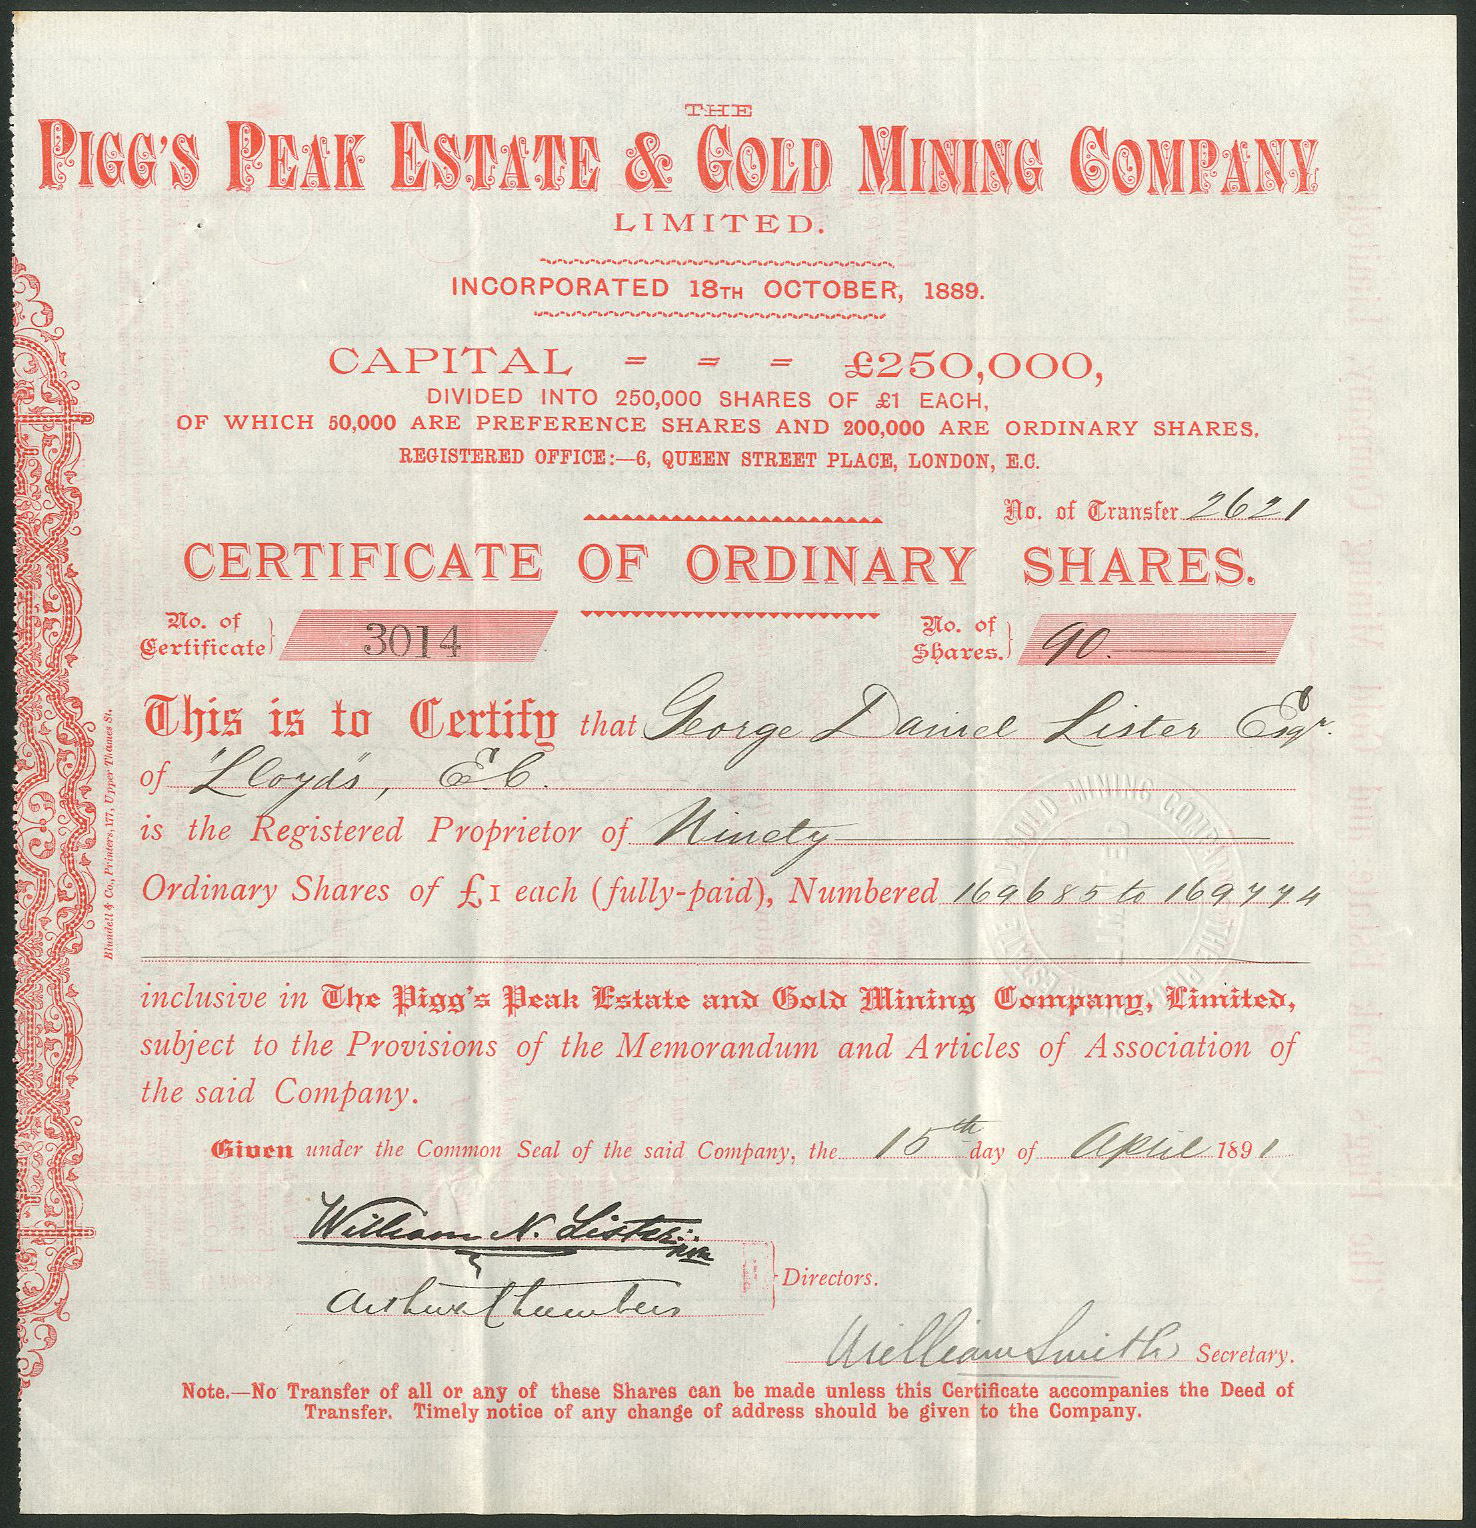 THE
PIGG'S PEAK ESTATE & GOLD MINING COMPANY
LIMITED.
INCORPORATED 18TH OCTOBER, 1889.
CAPITAL = = = £250,000,
DIVIDED INTO 250,000 SHARES OF £1 EACH,
OF WHICH 50,000 ARE PREFERENCE SHARES AND 200,000 ARE ORDINARY SHARES.
REGISTERED OFFICE:—6, QUEEN STREET PLACE, LONDON, E.C.
No. of Transfer 2621
CERTIFICATE OF ORDINARY SHARES.
No. of Certificate } 3014
No. of Shares. } 90.
This is to Certify that George Daniel Lister Esqr.
of "Lloyds", E.C.
is the Registered Proprietor of Ninety
Ordinary Shares of £1 each (fully-paid), Numbered 169685 to 169774
inclusive in The Pigg's Peak Estate and Gold Mining Company, Limited,
subject to the Provisions of the Memorandum and Articles of Association of
the said Company.
Given under the Common Seal of the said Company, the 15th day of April 1891
William N. Lister
Arthur Chambers
Directors.
William Smith Secretary.
Note.—No Transfer of all or any of these Shares can be made unless this Certificate accompanies the Deed of
Transfer. Timely notice of any change of address should be given to the Company.
Blundell & Co., Printers, 177, Upper Thames St.